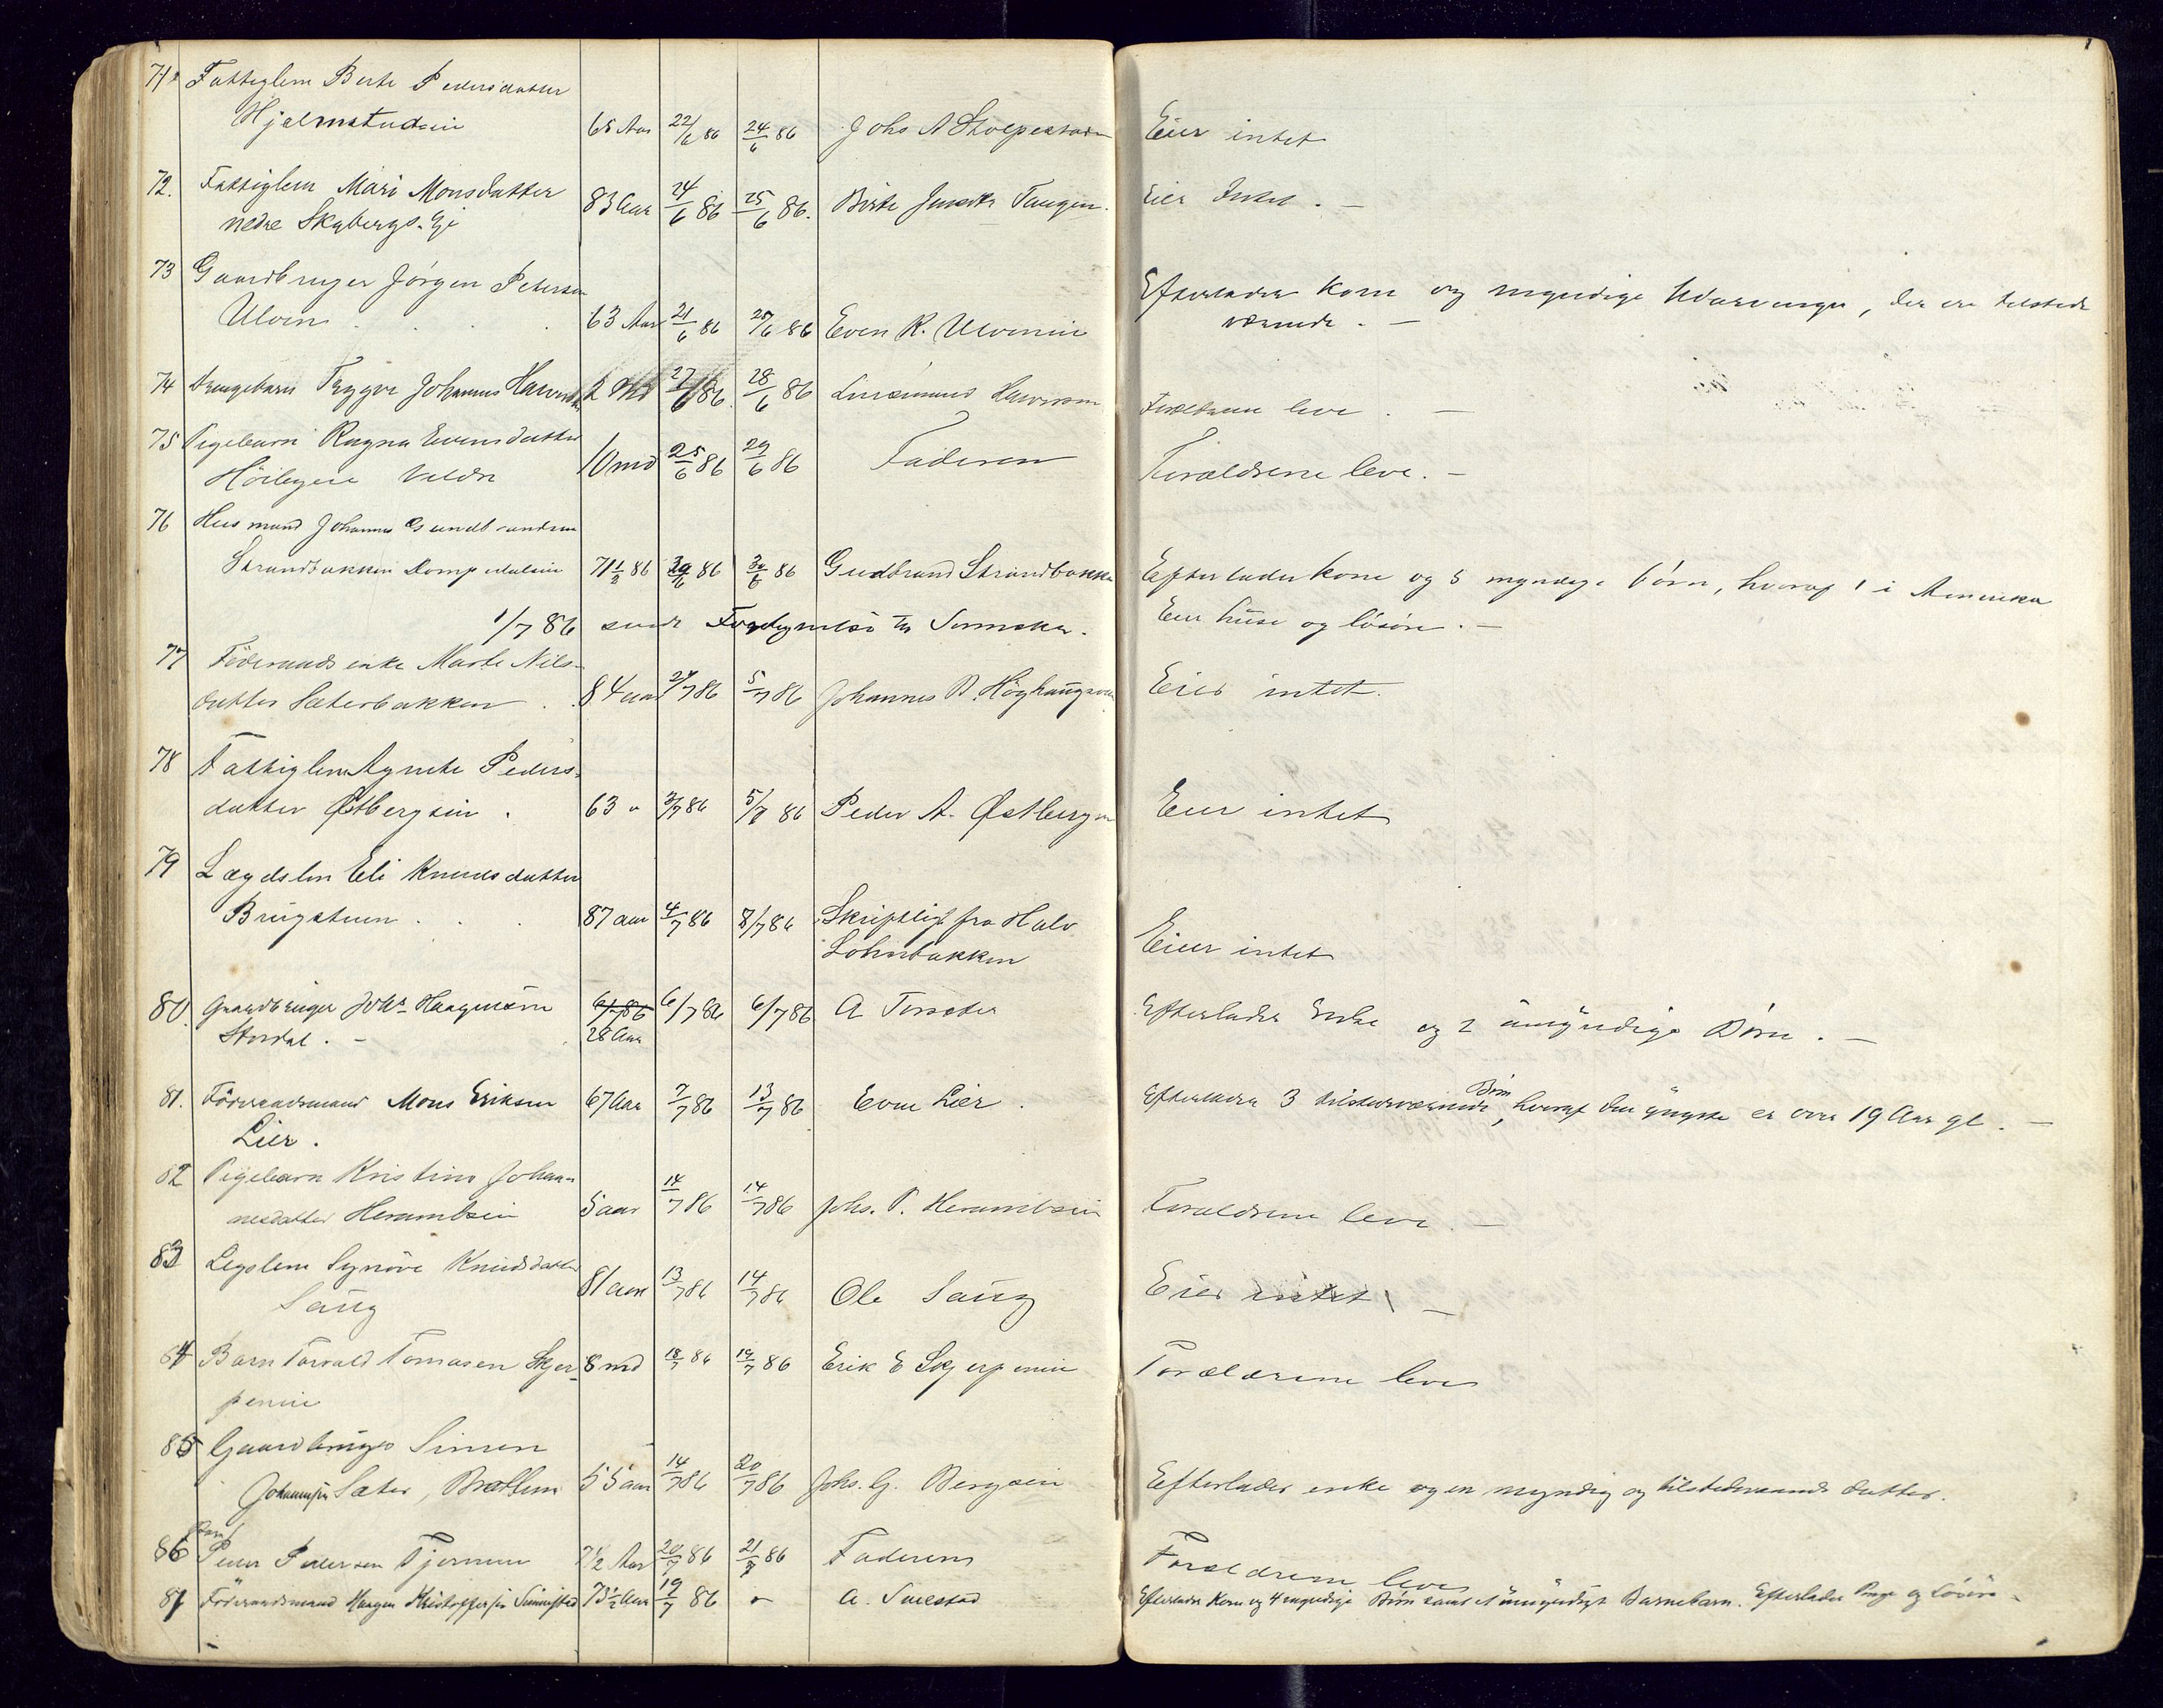 71. Fattiglem Berte Pedersdatter
Hjelmstudeie 68 Aar 22/6 86 24/6 86 Johs A Stolpestaden Eier intet
72. Fattiglem Mari Monsdatter
nedre Skybergs. Ei 83 Aar 24/6 86 25/6 86. Birte Tangen. Eier Intet. —
73 Gaardbruger Jørgen Petersen
Ulven . . . 63 Aar 21/6 86 28/6 86 Even R. Ulveneie Efterlader Kone og myndige Udarvinger, der ere tilstede
værende. —
74 Drengebarn Trygve Johannes 2 Md 27/6 86. 28/6 86 Forældrene leve. —
75 Pigebarn Ragna Evensdatter
Høibyeie Veldre 10 md 25/6 86 29/6 86 Faderen Forældrene leve. —
76 Husmand Johannes Gundbrandsen
Strandbakken 71 1/2 86 30/6 86 30/6 86 Gudbrand Strandbakken Efterlader kone og 5 myndige børn, hvoraf 1 i Amerika
1/7 86 Eier huse og løsøre. —
77 Føderaads enke Marte Nils-
datter Sæterbakken . 84 aar 2/7 86 5/7 86 Johannes Eier intet.
78 Fattiglem Agnete Peders-
datter Østbergseie . 63 " 3/7 86 5/7 86 Peder A. Østbergseie Eier intet
79 Lægdslem Eli Knudsdatter
Brugstuen . . . 87 aar 4/7 86 8/7 86 Skriftligt fra Halv
Lohnbakken Eier intet
80. Gaardbruger Johs Haagensen 6/7 86 6/7 86 6/7 86 A Efterlader Enke og 2 umyndige Børn. —
Stordal. — 28 Aar
81. Føderaadsmand Mons Eriksen 67 Aar 7/7 86 13/7 86 Even Lier . Efterlader 3 tilstedeværende Børn, hvoraf den yngste er over 19 Aar gl. —
Lier.
82 Pigebarn Kristine Johan-
nesdatter 5 aar 14/7 86 14/7 86 Johs. P. Forældrene leve. —
83 Legslem Synøve Knudsdatter
Saug 81 aar 13/7 86 14/7 86 Ole Saug Eier intet —
84 Barn Torvald Tomasen Skjer- 8 md 18/7 86 19/7 86 Erik E Skjerpeneie Forældrene leve
peneie
85 Gaardbruger Simen
Johannesen Sæter, 55 aar 14/7 86 20/7 86 Johs. G. Bergseie Efterlader enke og en myndig og tilstedeværende datter.
Barn
86 Peder Pedersen Tjernen 7 1/2 Aar 20/7 86 21/7 86 Faderen Forældrene leve
87 Føderaadsmand Haagen Kristoffersen 73 1/2 Aar 19/7 86 " A. Smestad Efterlader Kone og 4 myndige Børn samt et umyndigt Barnebarn. Efterlader Penge og Løsøre.